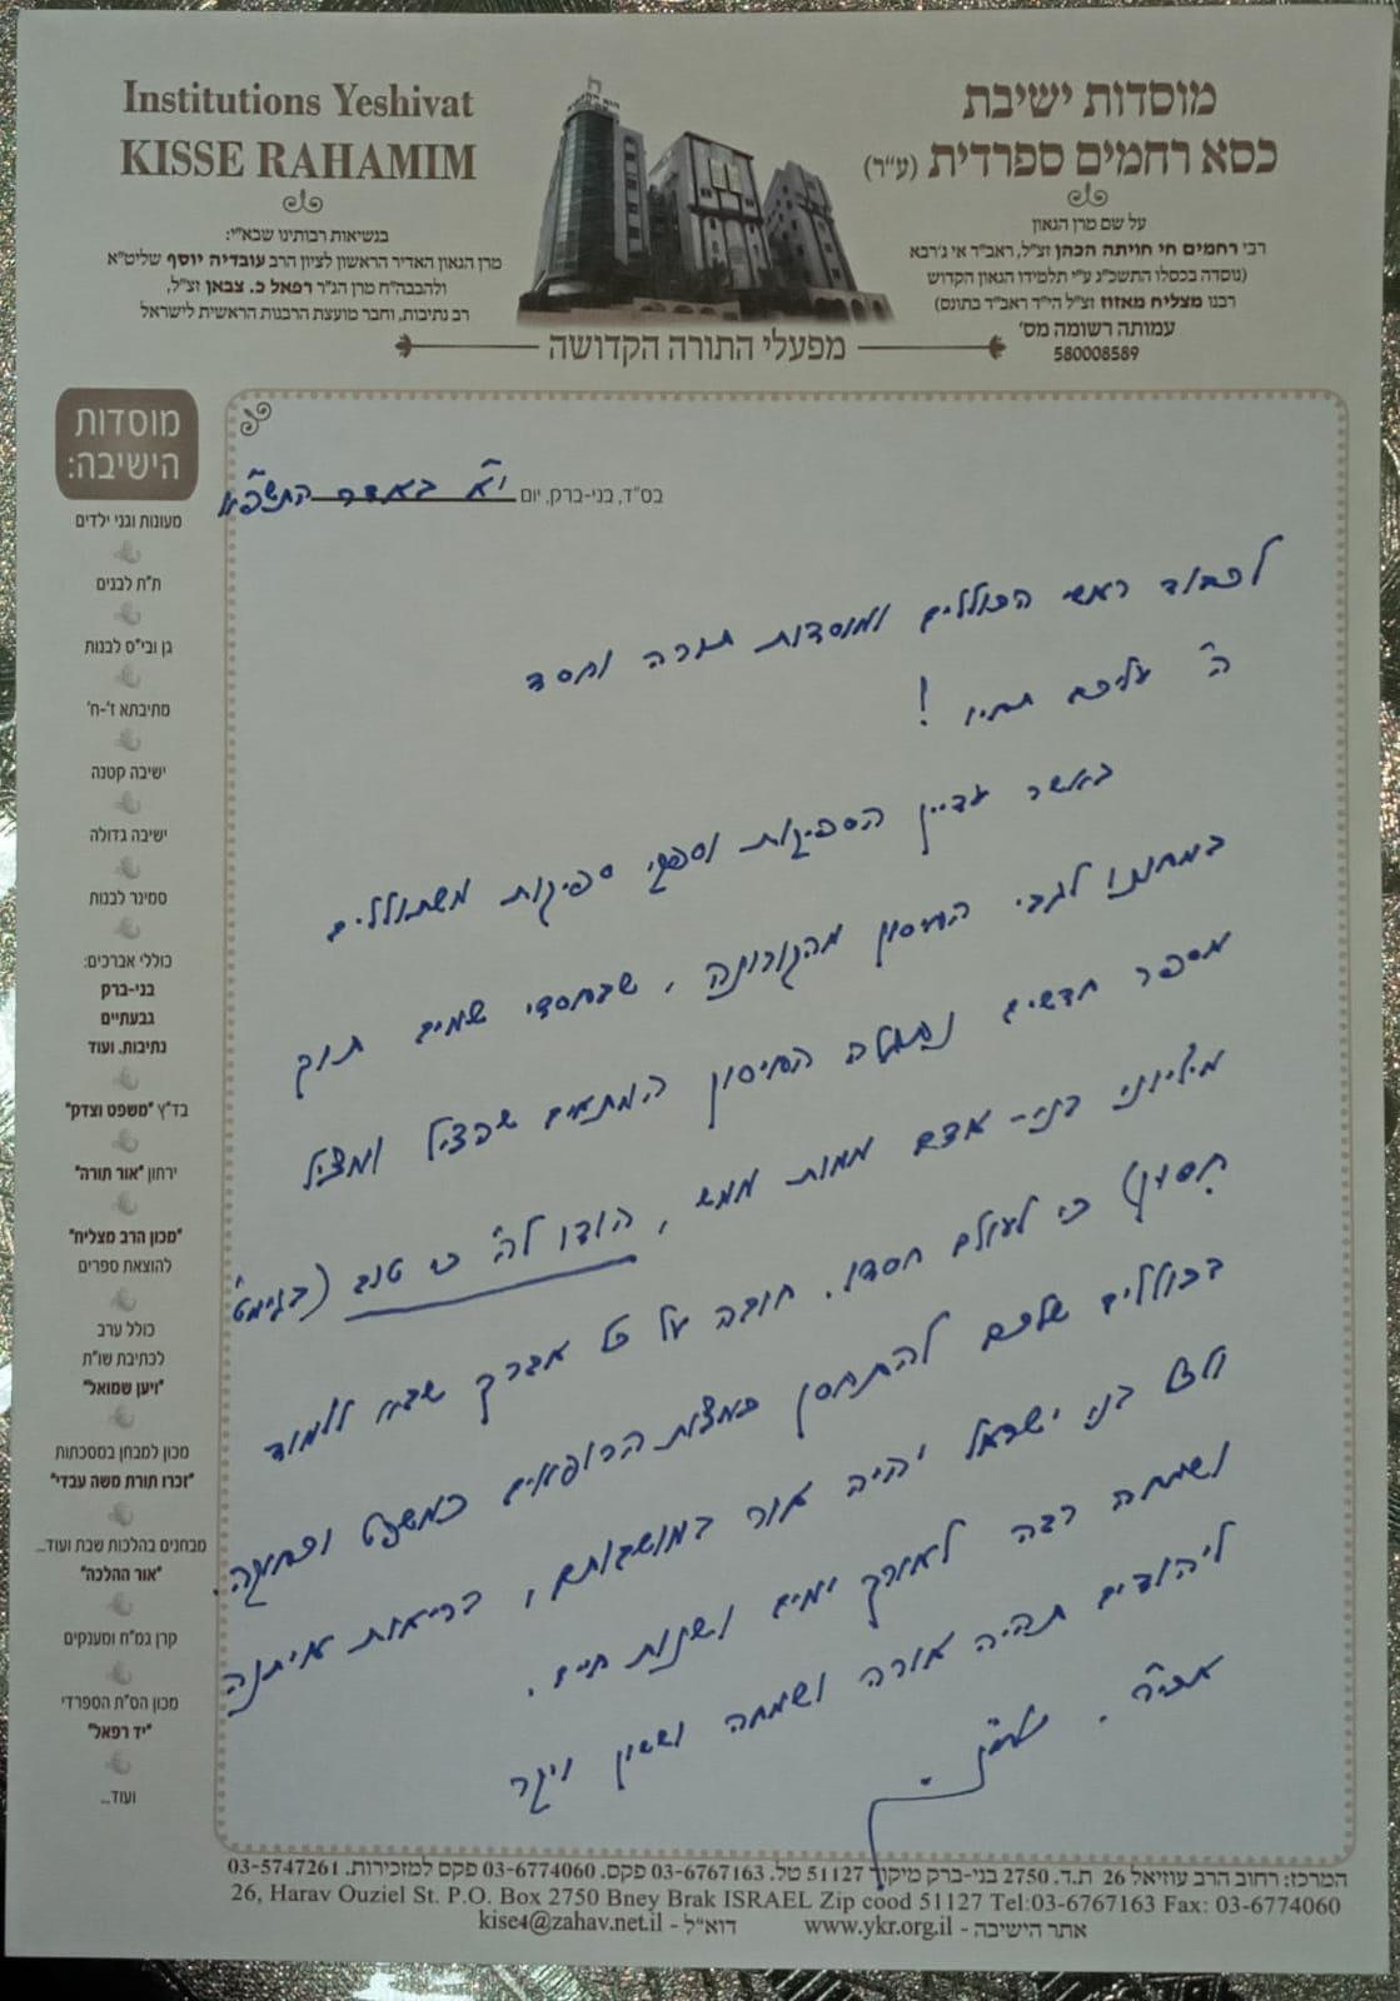 Institutions Yeshivat
KISSE RAHAMIM
בנשיאות רבותינו שבא״י:
מרן הגאון האדיר הראשון לציון הרב עובדיה יוסף שליט״א
ולהבבה״ח מרן הג״ר רפאל כ. צבאן זצ״ל,
רב נתיבות, וחבר מועצת הרבנות הראשית לישראל
מוסדות ישיבת
כסא רחמים ספרדית (ע״ר)
על שם מרן הגאון
רבי רחמים חי חויתה הכהן זצ״ל, ראב״ד אי ג׳רבא
(נוסדה בכסלו התשכ״ג ע״י תלמידו הגאון הקדוש
רבנו מצליח מאזוז זצ״ל הי״ד ראב״ד בתונס)
עמותה רשומה מס׳
580008589
מפעלי התורה הקדושה
בס״ד, בני-ברק, יום י״א באדר התשפ״א
לכבוד ראשי הכוללים ומוסדות תורה וחסד
ה׳ עליכם תחיו!
באשר עדיין הספיקות וספקי ספיקות משתוללים
במחננו לגבי החיסון מהקורונה, שבחסדי שמים תוך
מספר חדשים נתגלה החיסון המתאים שהציל ומציל
מיליוני בני-אדם ממות ממש, הודו לה׳ כי טוב (בגימט׳
חִסּוּן) כי לעולם חסדו. חובה על כל אברך שבא ללמוד
בכוללים שלכם להתחסן כמצות הרופאים כמשפט וכחוקה.
ולכל בני ישראל יהיה אור במושבותם, בריאות איתנה
ושמחה רבה לאורך ימים ושנות חיים.
ליהודים תהיה אורה ושמחה וששון ויקר
אכי״ר.
מוסדות
הישיבה:
מעונות וגני ילדים
ת״ת לבנים
גן ובי״ס לבנות
מתיבתא ז׳-ח׳
ישיבה קטנה
ישיבה גדולה
סמינר לבנות
כוללי אברכים:
בני-ברק
גבעתיים
נתיבות, ועוד
בד״ץ ״משפט וצדק״
ירחון ״אור תורה״
״מכון הרב מצליח״
להוצאת ספרים
כולל ערב
לכתיבת שו״ת
״ויען שמואל״
מכון למבחן במסכתות
״זכרו תורת משה עבדי״
מבחנים בהלכות שבת ועוד...
״אור ההלכה״
קרן גמ״ח ומענקים
מכון הס״ת הספרדי
״יד רפאל״
ועוד...
המרכז: רחוב הרב עוזיאל 26 ת.ד. 2750 בני-ברק מיקוד 51127 טל. 03-6767163 פקס. 03-6774060 פקס למזכירות. 03-5747261
26, Harav Ouziel St. P.O. Box 2750 Bney Brak ISRAEL Zip cood 51127 Tel:03-6767163 Fax: 03-6774060
אתר הישיבה - www.ykr.org.il דוא״ל - kise4@zahav.net.il